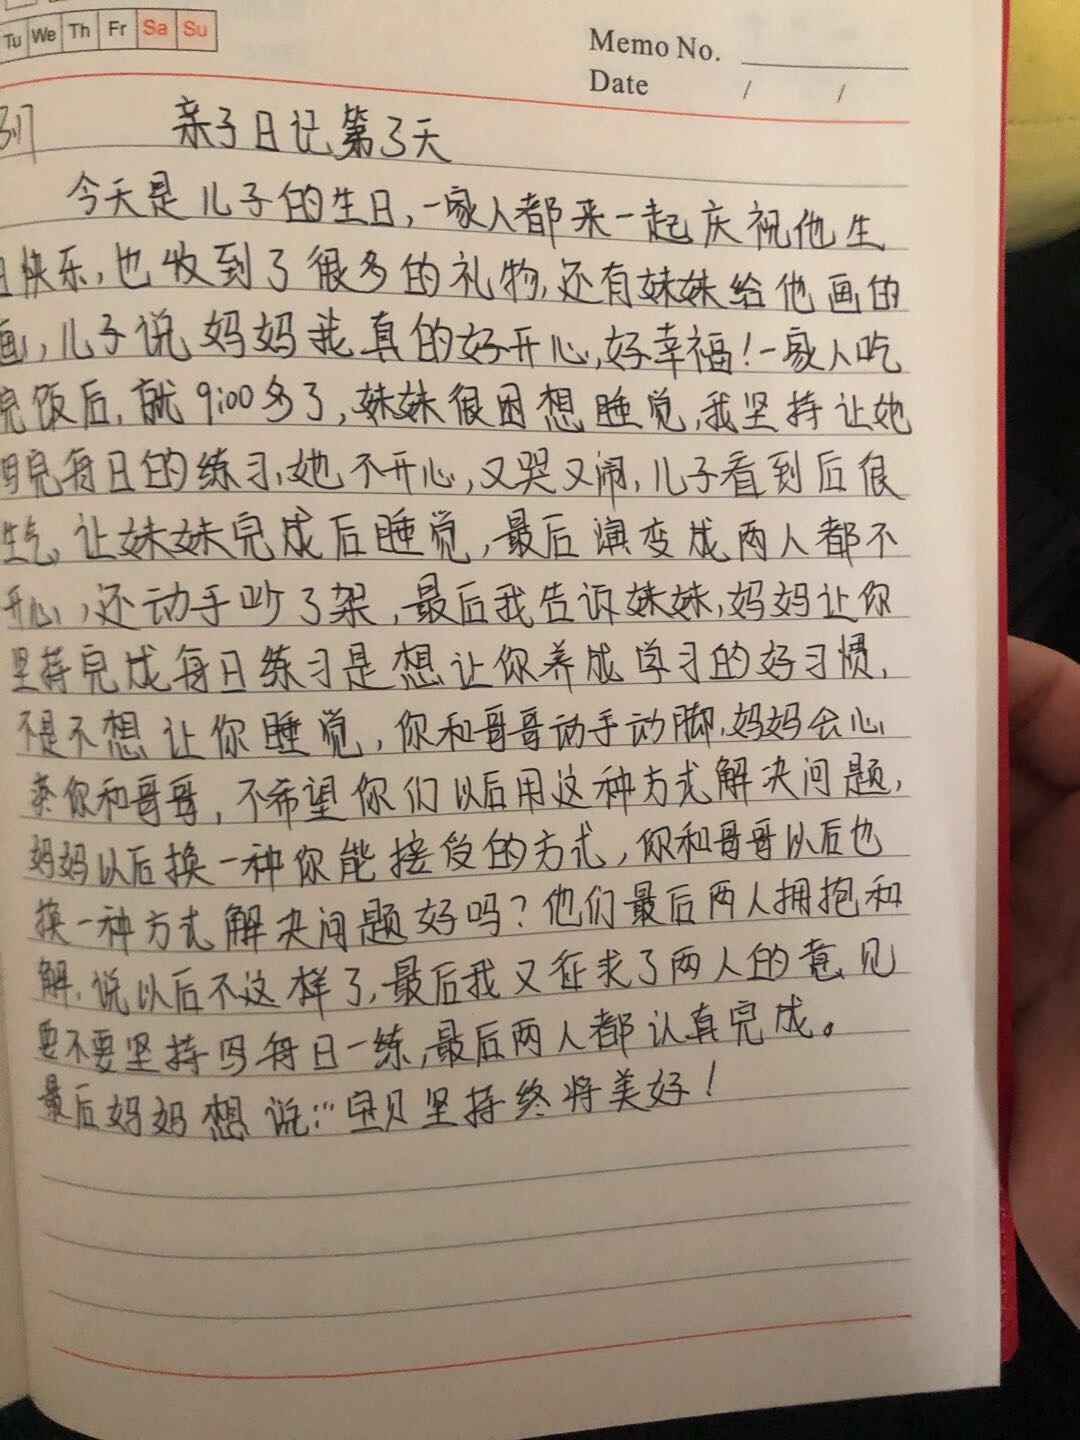 Tu We Th Fr Sa Su
Memo No.
Date / /
亲子日记第3天
今天是儿子的生日,一家人都来一起庆祝他生
日快乐,也收到了很多的礼物,还有妹妹给他画的
画,儿子说妈妈我真的好开心,好幸福!一家人吃
完饭后,就9:00多了,妹妹很困想睡觉,我坚持让她
完每日的练习,她不开心,又哭又闹,儿子看到后很
生气,让妹妹完成后睡觉,最后演变成两人都不
开心,还动手吵了架,最后我告诉妹妹,妈妈让你
坚持完成每日练习是想让你养成学习的好习惯,
不是不想让你睡觉,你和哥哥动手动脚,妈妈会心
疼你和哥哥,不希望你们以后用这种方式解决问题,
妈妈以后换一种你能接受的方式,你和哥哥以后也
换一种方式解决问题好吗?他们最后两人拥抱和
解,说以后不这样了,最后我又征求了两人的意见
要不要坚持每日一练,最后两人都认真完成。
最后妈妈想说:宝贝坚持终将美好!